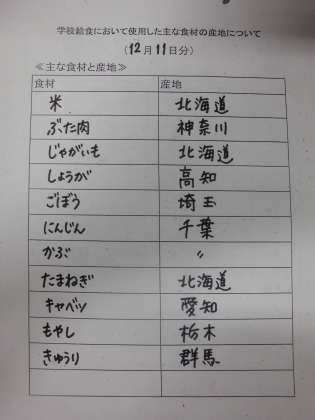 学校給食において使用した主な食材の産地について
(12月11日分)
≪主な食材と産地≫
食材 産地
米 北海道
ぶた肉 神奈川
じゃがいも 北海道
しょうが 高知
ごぼう 埼玉
にんじん 千葉
かぶ 〃
たまねぎ 北海道
キャベツ 愛知
もやし 栃木
きゅうり 群馬